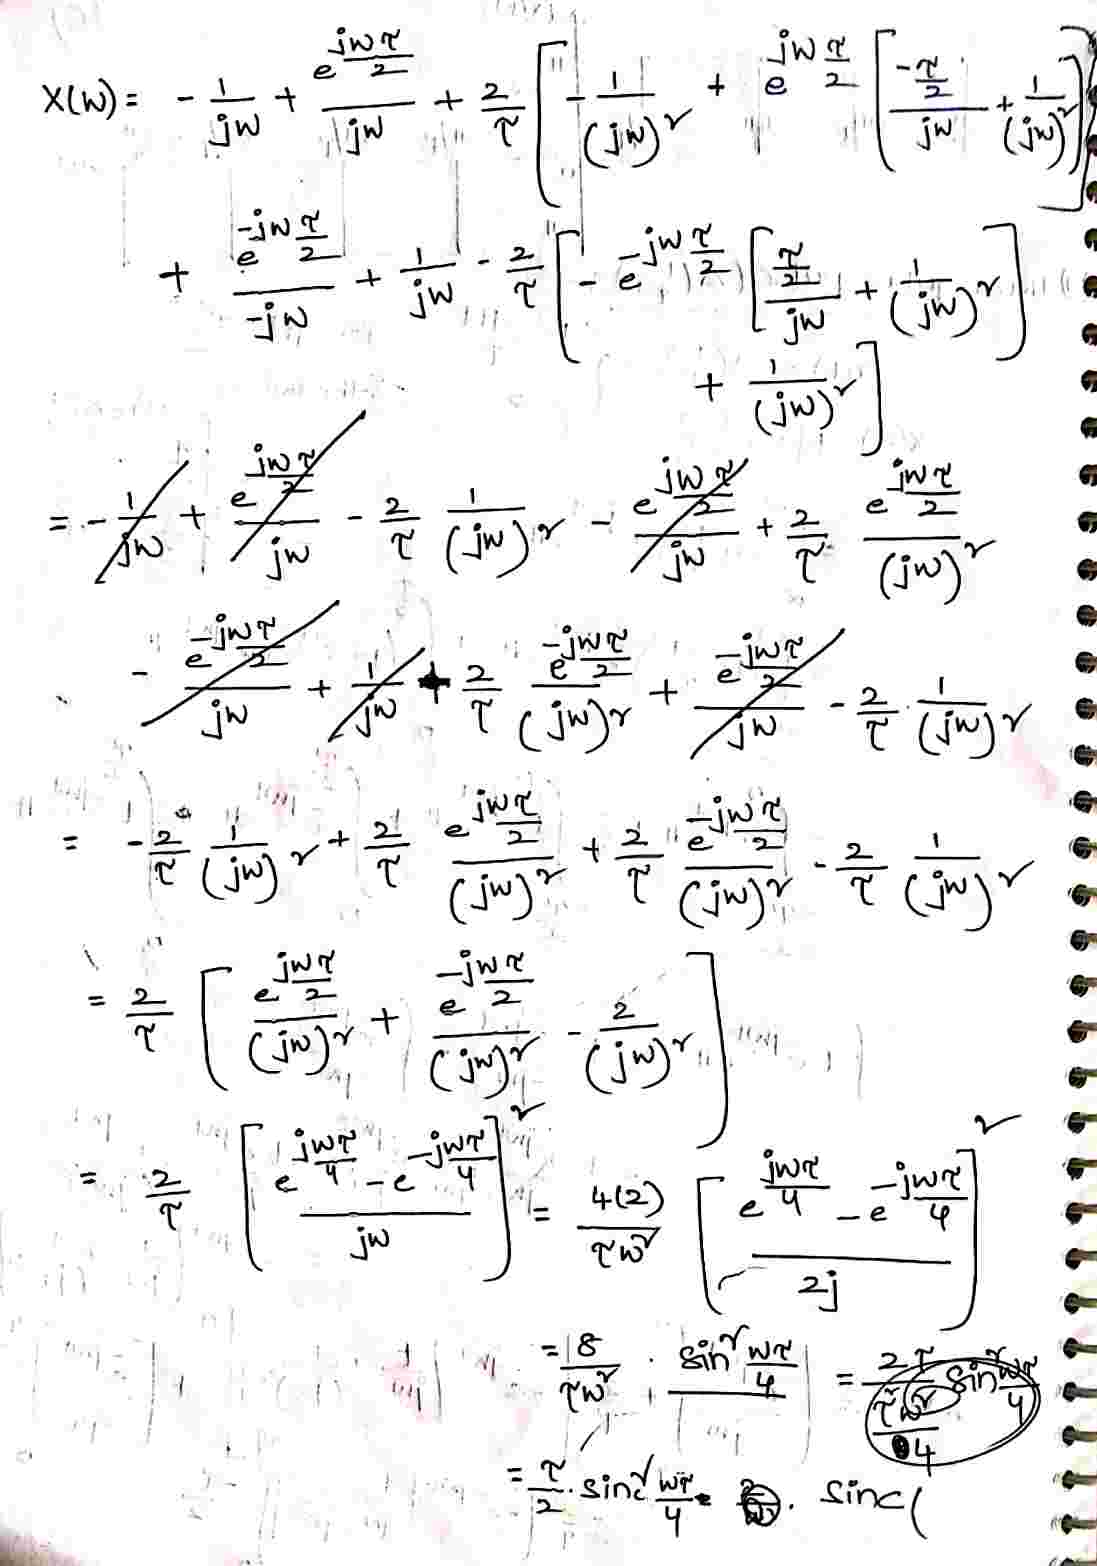 X(w) = - 1/jw + e^(jwτ/2)/jw + 2/τ [ - 1/(jw)² + e^(jwτ/2) [ (-τ/2)/jw + 1/(jw)² ] ]
+ e^(-jwτ/2)/-jw + 1/jw - 2/τ [ - e^(-jwτ/2) [ (τ/2)/jw + 1/(jw)² ]
+ 1/(jw)² ]
= - 1/jw + e^(jwτ/2)/jw - 2/τ 1/(jw)² - e^(jwτ/2)/jw + 2/τ e^(jwτ/2)/(jw)²
- e^(-jwτ/2)/jw + 1/jw + 2/τ e^(-jwτ/2)/(jw)² + e^(-jwτ/2)/jw - 2/τ · 1/(jw)²
= - 2/τ 1/(jw)² + 2/τ e^(jwτ/2)/(jw)² + 2/τ e^(-jwτ/2)/(jw)² - 2/τ 1/(jw)²
= 2/τ [ e^(jwτ/2)/(jw)² + e^(-jwτ/2)/(jw)² - 2/(jw)² ]
= 2/τ [ (e^(jwτ/4) - e^(-jwτ/4))/jw ]² = 4(2)/τw² [ (e^(jwτ/4) - e^(-jwτ/4))/2j ]²
= 8/τw² · sin² wτ/4 = 2τ/(τ²w²/4) sin² wτ/4
= τ/2 · sinc² wτ/4 · sinc(